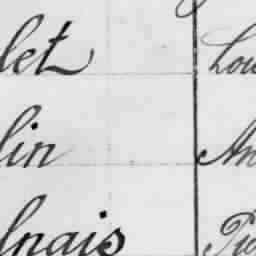 let Lou
lin An
lnais Pie